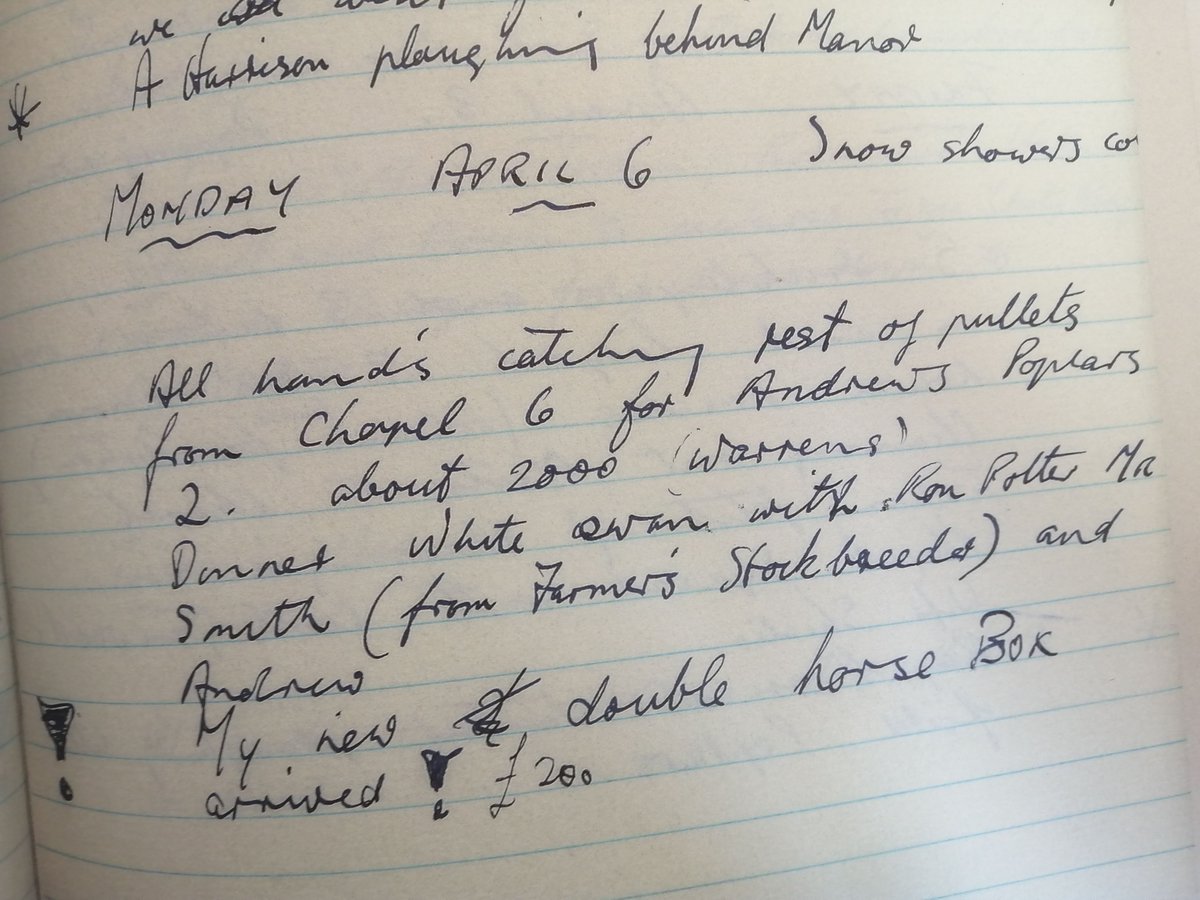 we
* A Harrison ploughing behind Manor
MONDAY APRIL 6 Snow showers co
All hands catching rest of pullets
from Chapel 6 for Andrews Poplars
2. about 2000 (Warrens)
Dinner White Swan with Ron Potter Mr
Smith (from Farmer's Stockbreeder) and
Andrew
! My new double horse Box
arrived ! £200